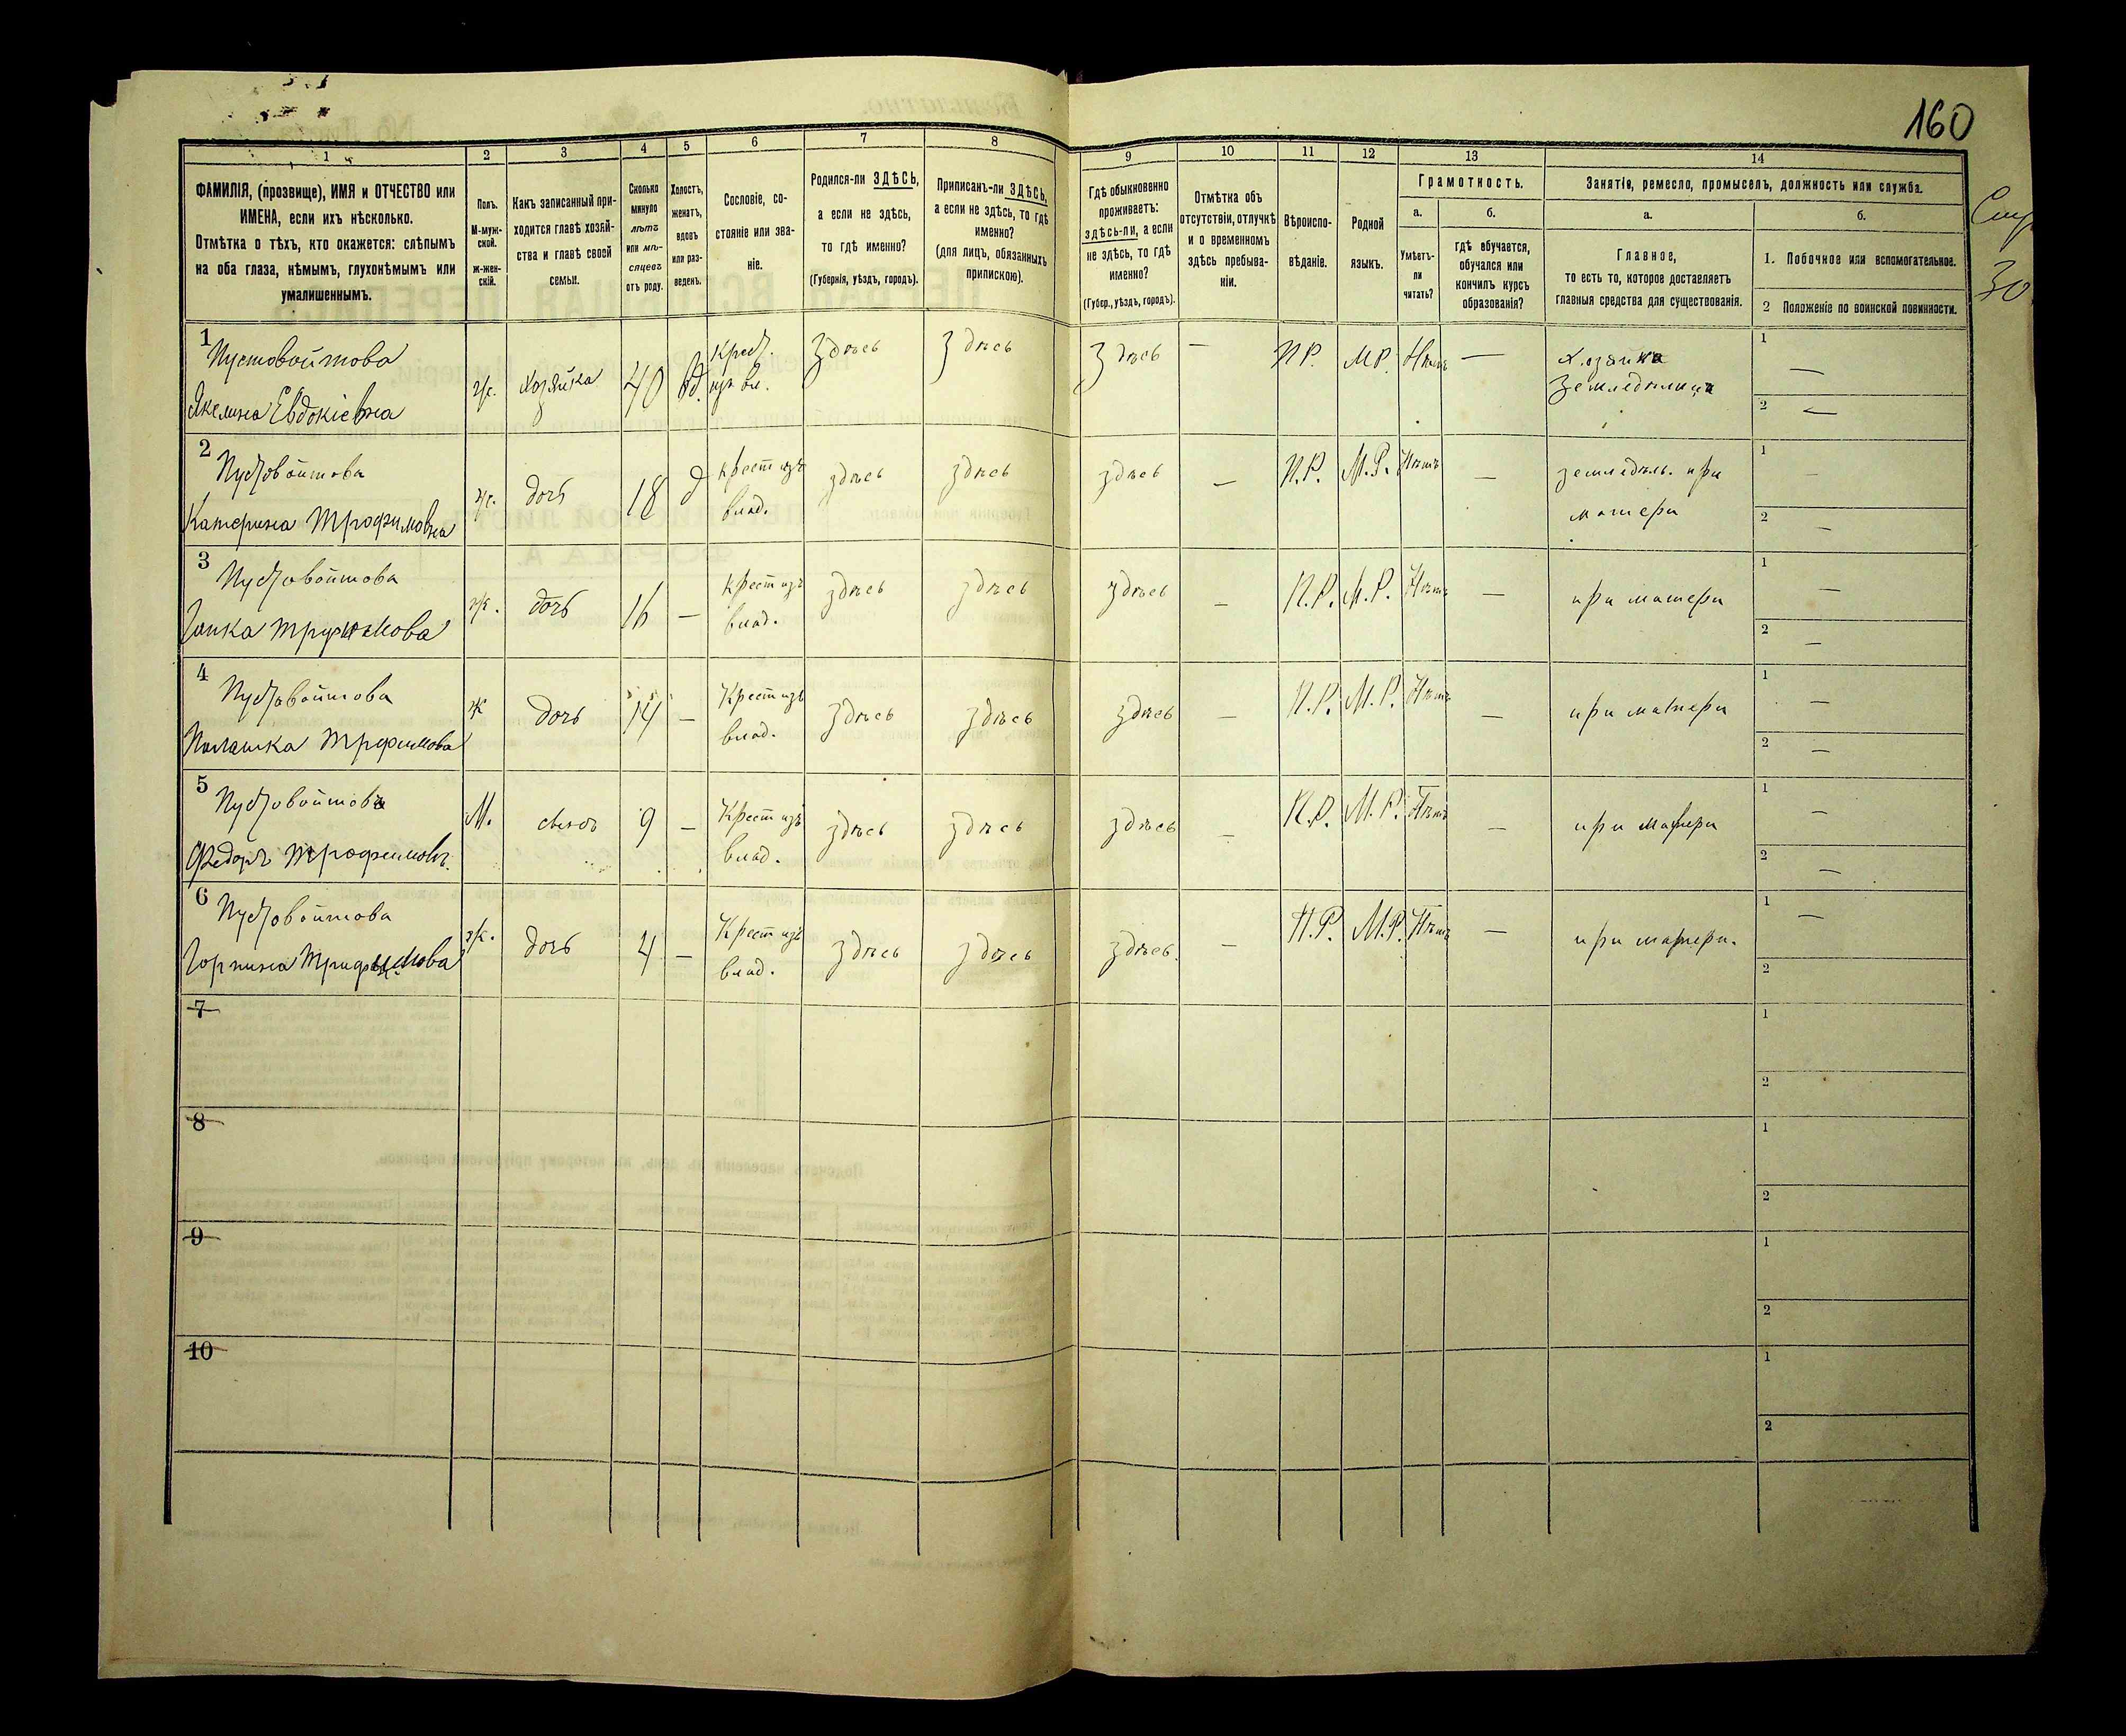 160
1 2 3 4 5 6 7 8 9 10 11 12 13 14
ФАМИЛІЯ, (прозвище), ИМЯ и ОТЧЕСТВО или
ИМЕНА, если ихъ нѣсколько.
Отмѣтка о тѣхъ, кто окажется: слѣпымъ
на оба глаза, нѣмымъ, глухонѣмымъ или
умалишеннымъ.
Полъ.
М-муж-
ской.
ж-жен-
скій.
Какъ записанный при-
ходится главѣ хозяй-
ства и главѣ своей
семьи.
Сколько
минуло
лѣтъ
или мѣ-
сяцевъ
отъ роду.
Холостъ,
женатъ,
вдовъ
или раз-
веденъ.
Сословіе, со-
стояніе или зва-
ніе.
Родился-ли ЗДѢСЬ,
а если не здѣсь,
то гдѣ именно?
(Губернія, уѣздъ, городъ).
Приписанъ-ли ЗДѢСЬ,
а если не здѣсь, то гдѣ
именно?
(для лицъ, обязанныхъ
припискою).
Гдѣ обыкновенно
проживаетъ:
здѣсь-ли, а если
не здѣсь, то гдѣ
именно?
(Губер., уѣздъ, городъ).
Отмѣтка объ
отсутствіи, отлучкѣ
и о временномъ
здѣсь пребыва-
ніи.
Вѣроиспо-
вѣданіе.
Родной
языкъ.
Грамотность.
а.
Умѣетъ-
ли
читать?
б.
гдѣ обучается,
обучался или
кончилъ курсъ
образованія?
Занятіе, ремесло, промыселъ, должность или служба.
а.
Главное,
то есть то, которое доставляетъ
главныя средства для существованія.
б.
1. Побочное или вспомогательное.
2 Положеніе по воинской повинности.
30
1 Пустовойтова
Якелина Евдокіевна
ж. хозяйка 40 вд. Крест. изъ вл. Здѣсь Здѣсь Здѣсь — П Р. М Р. Нѣтъ — Хозяйка
земледѣлица
1 —
2 —
2 Пустовойтова
Катерина Трофимовна
ж. дочь 18 д Крест изъ
влад. здѣсь здѣсь здѣсь — П.Р. М.Р. Нѣтъ — земледѣль. при
матери
1 —
2 —
3 Пустовойтова
ж. дочь 16 — Крест изъ
влад. здѣсь здѣсь здѣсь — П.Р. М.Р. Нѣтъ — при матери
1 —
2 —
4 Пустовойтова
Палашка Трофимова
ж дочь 14 — Крест изъ
влад. здѣсь здѣсь здѣсь — П.Р. М.Р. Нѣтъ — при матери
1 —
2 —
5 Пустовойтовъ
Федоръ Трофимовъ.
М. сынъ 9 — Крест изъ
влад. здѣсь здѣсь здѣсь — П.Р. М.Р. Нѣтъ — при матери
1 —
2 —
6 Пустовойтова
Горпина Трифимова
ж. дочь 4 — Крест изъ
влад. здѣсь здѣсь здѣсь. — П.Р. М.Р. Нѣтъ — при матери.
1 —
2
7
1
2
8
1
2
9
1
2
10
1
2